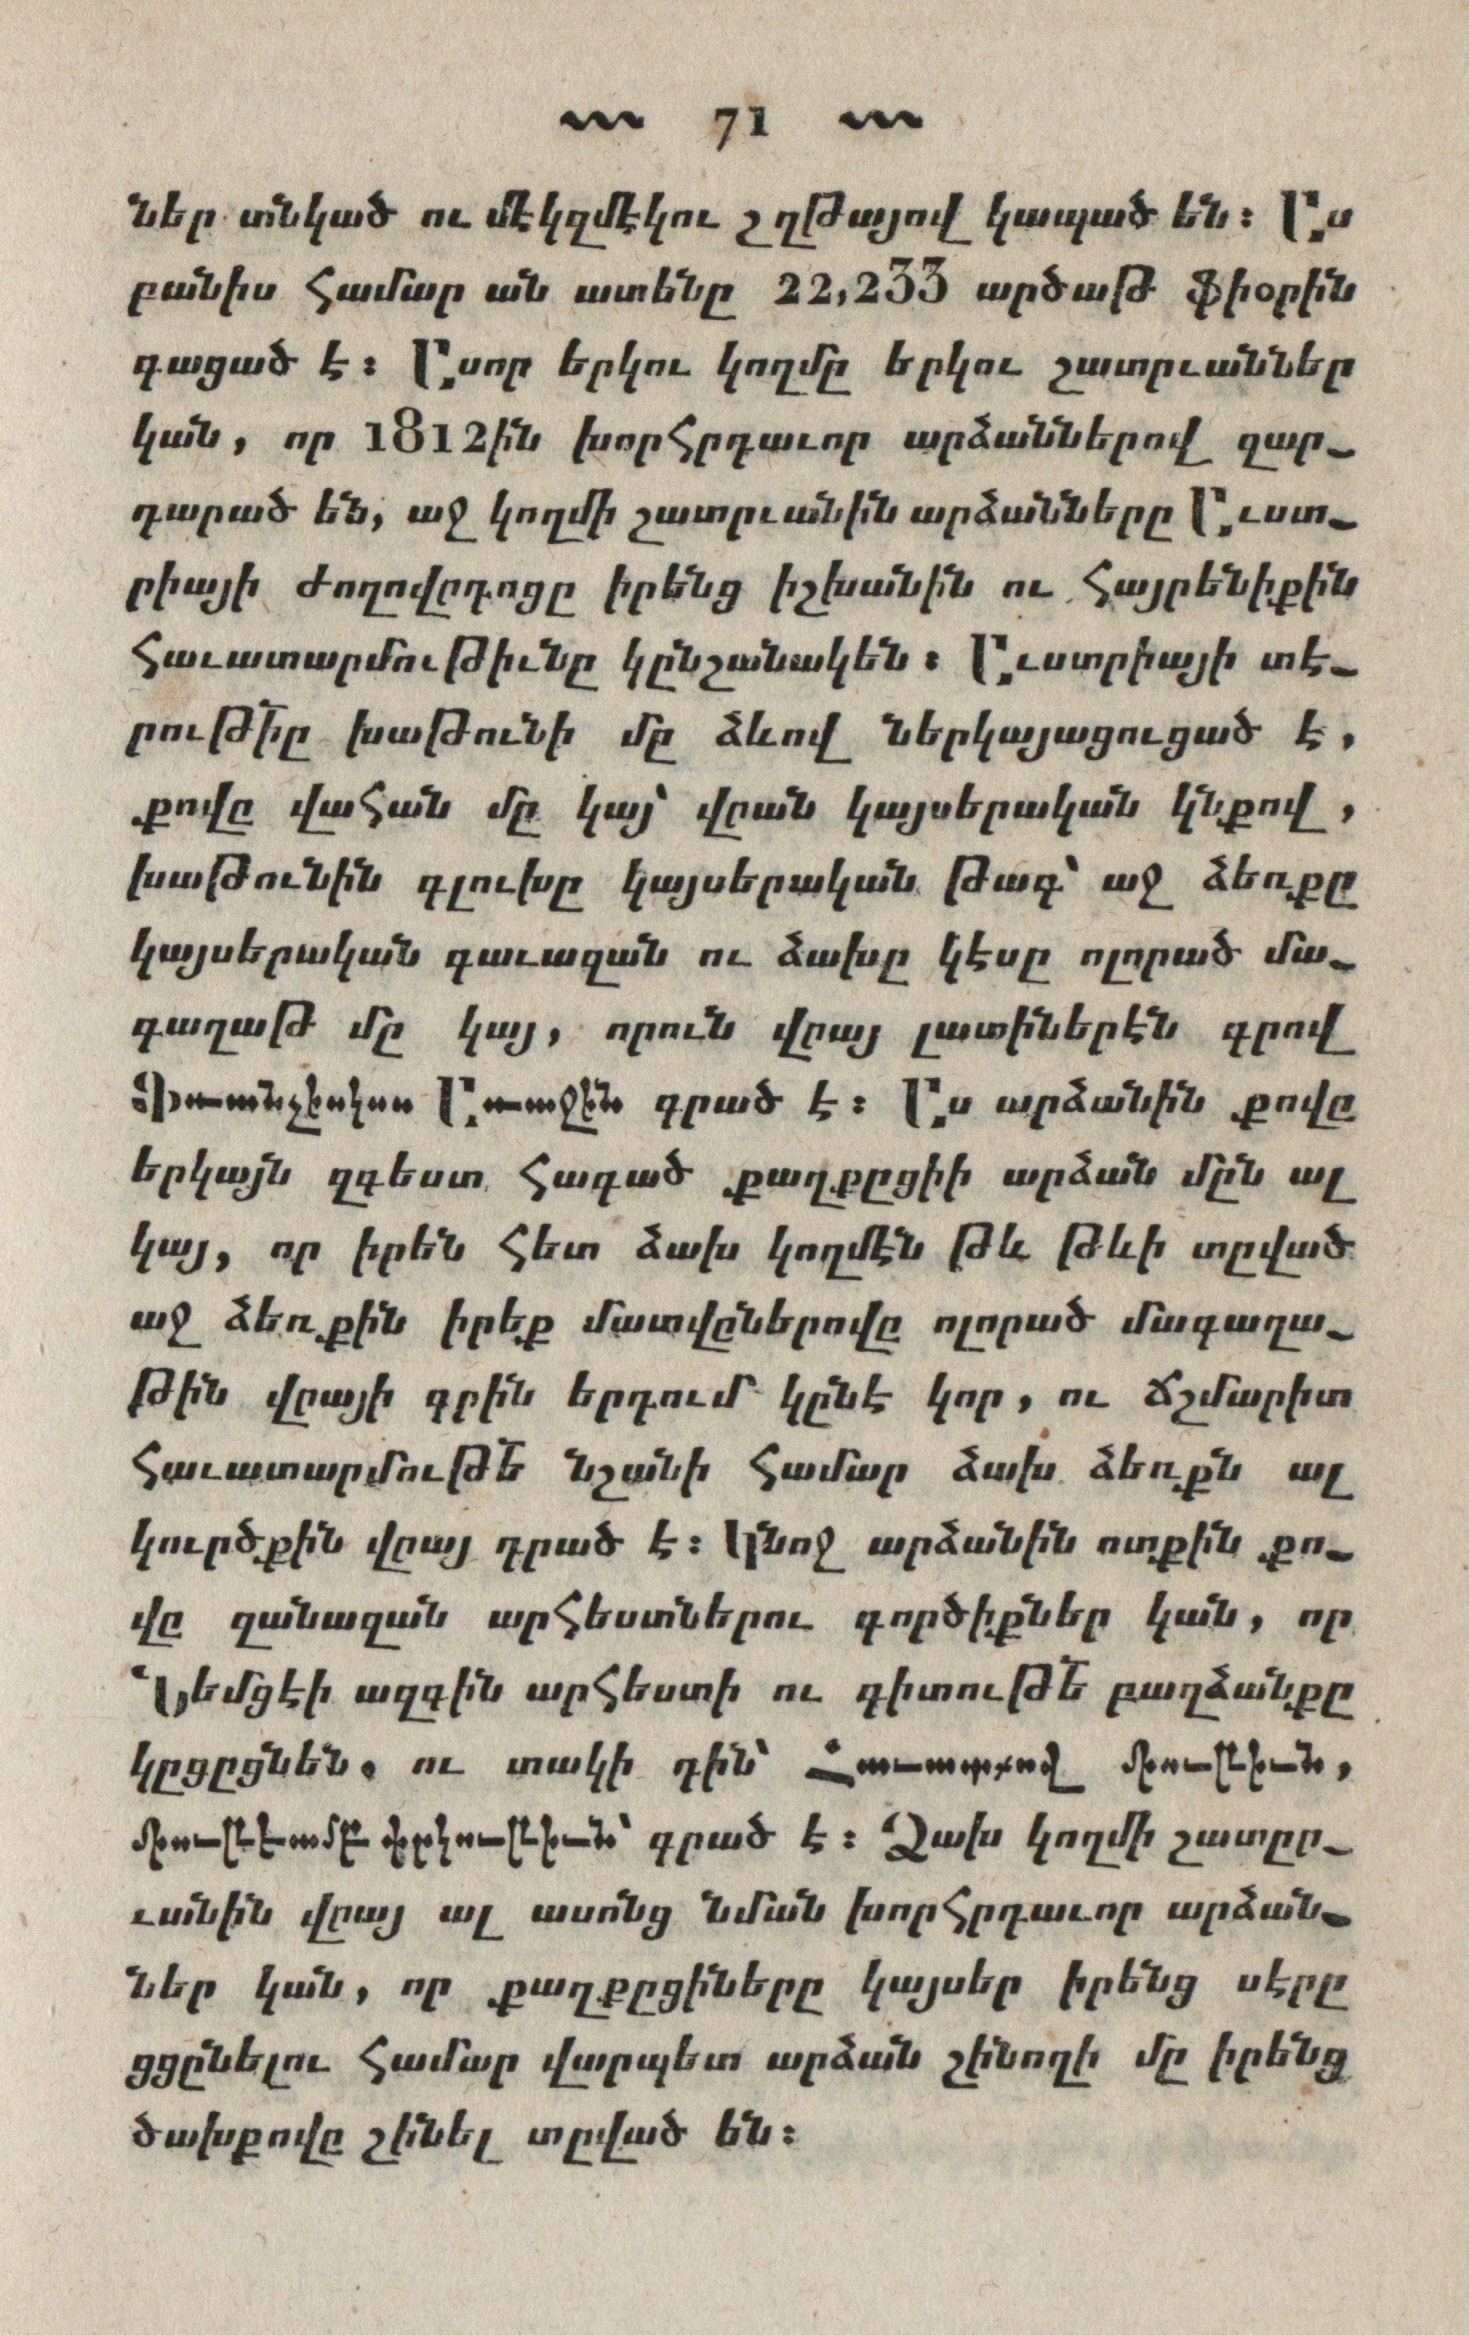 71
ներ տնկած ու մէկզմէկու շղթայով կապած են։ Աս
բանիս համար ան ատենը 22,233 արծաթ ֆիօրին
գացած է։ Ասոր երկու կողմը երկու շատրւաններ
կան, որ 1812ին խորհրդաւոր արձաններով զար-
դարած են, աջ կողմի շատրւանին արձանները Աւստ-
րիայի ժողովըդոցը իրենց իշխանին ու հայրենիքին
հաւատարմութիւնը կընշանակեն։ Աւստրիայի տէ-
րութիը խաթունի մը ձևով ներկայացուցած է,
քովը վահան մը կայ՝ վրան կայսերական կնքով,
խաթունին գլուխը կայսերական թագ՝ աջ ձեռքը
կայսերական գաւազան ու ձախը կէսը ոլորած մա-
գաղաթ մը կայ, որուն վրայ լատիներէն գրով
Ֆռանչիսկոս Առաջին գրած է։ Աս արձանին քովը
երկայն զգեստ հագած քաղքըցիի արձան մըն ալ
կայ, որ իրեն հետ ձախ կողմէն թև թևի տըված
աջ ձեռքին իրեք մատվըներովը ոլորած մագաղա-
թին վըայի գրին երդում կընէ կոր, ու ճշմարիտ
հաւատարմութե նշանի համար ձախ ձեռքն ալ
կուրծքին վըայ դրած է։ Կնոջ արձանին ոտքին քո-
վը զանազան արհեստներու գործիքներ կան, որ
Նեմցէի ազգին արհեստի ու գիտութե բաղձանքը
կըցըցնեն. ու տակի դին՝
գրած է։ Ձախ կողմի շատըր-
ւանին վըայ ալ ասոնց նման խորհրդաւոր արձան-
ներ կան, որ քաղքըցիները կայսեր իրենց սէրը
ցցընելու համար վարպետ արձան շինողի մը իրենց
ծախքովը շինել տըված են։